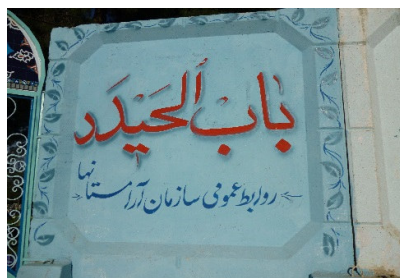 بابُ الحَیدَر
روابط عمومی سازمان آرامستانها